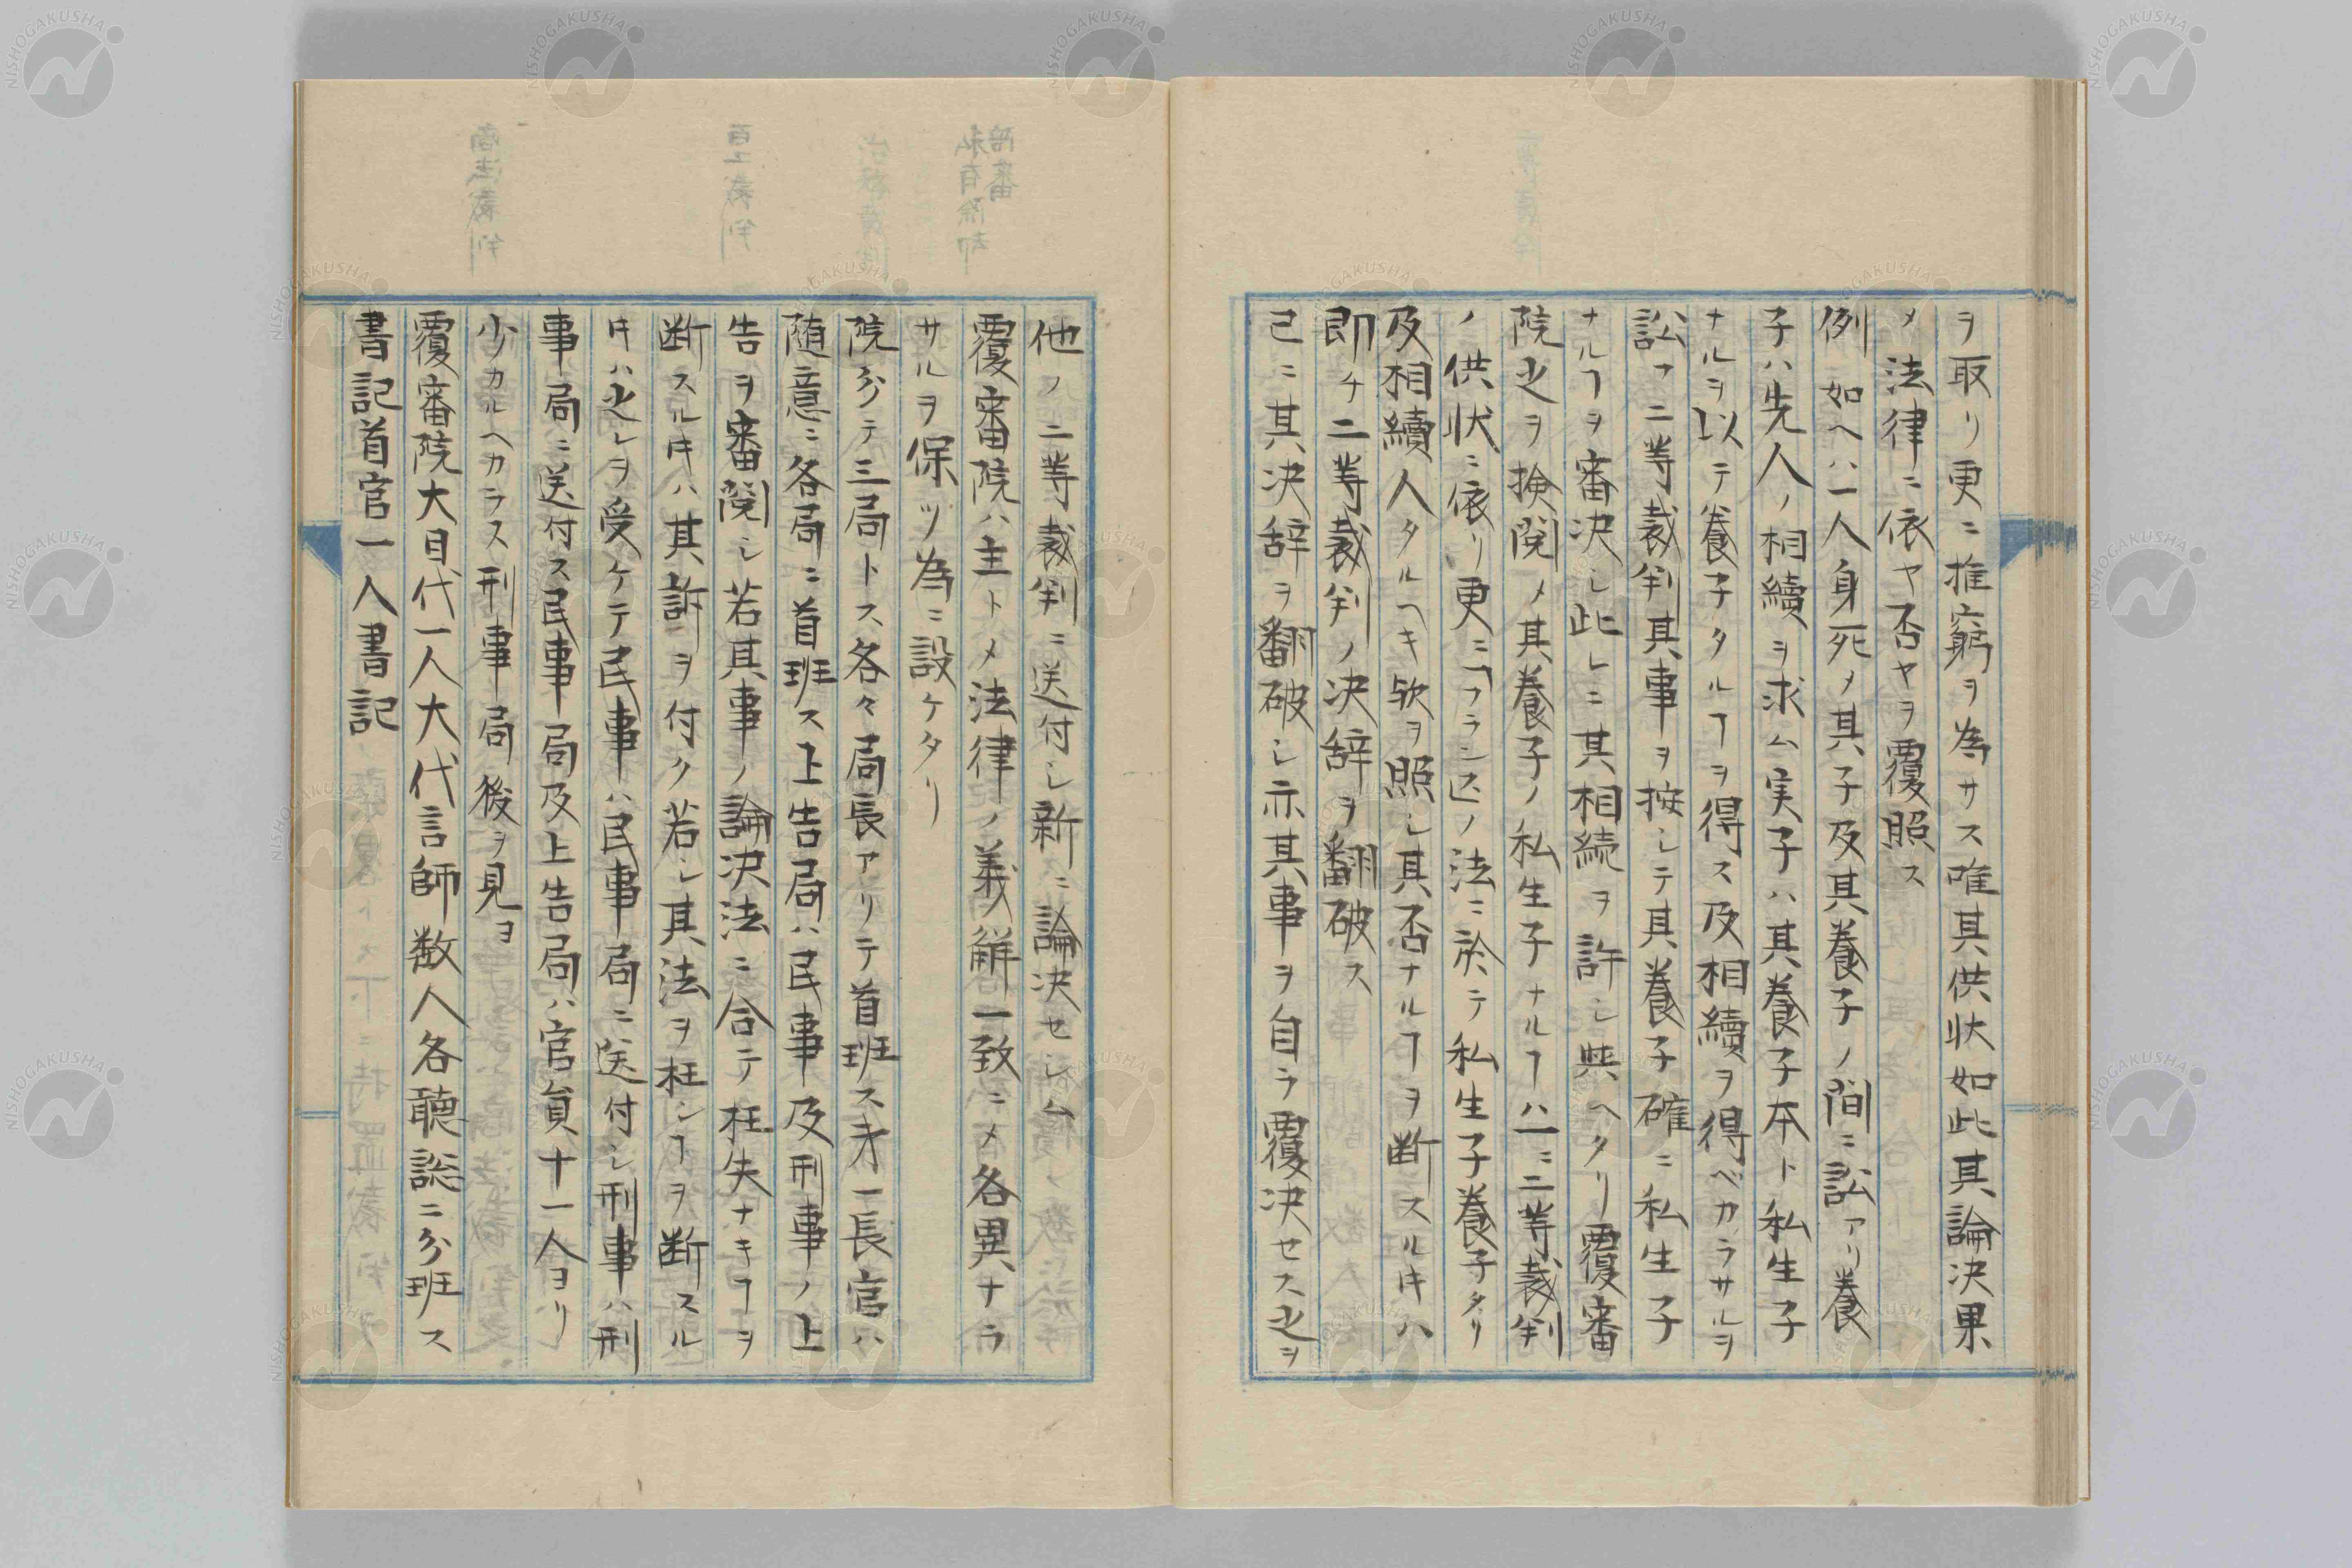 ヲ取リ更ニ推窮ヲ為サス唯其供状如此其論決果
〆法律ニ依ヤ否ヤヲ覆照ス
例如ヘハ一人身死〆其子及其養子ノ間ニ訟アリ養
子ハ先人ノ相續ヲ求ム実子ハ其養子本ト私生子
ナルヲ以テ養子タルヿヲ得ス及相續ヲ得ベカラサルヲ
訟フ二等裁判其事ヲ按シテ其養子確ニ私生子
ナルヿヲ審決シ此レニ其相続ヲ許シ與ヘタリ覆審
院之ヲ検閲〆其養子ノ私生子ナルヿハ一ニ二等裁判
ノ供状ニ依リ更ニ
法ニ於テ私生子養子タリ
及相續人タルヘキ欤ヲ照シ其否ナルヿヲ断スルキハ
即チ二等裁判ノ决辞ヲ翻破ス
已ニ其决辞ヲ翻破シ亦其事ヲ自ラ覆决セス之ヲ
他ノ二等裁判ニ送付シ新ニ論决セシム
覆審院ハ主ト〆法律ノ義解一致ニ〆各異ナラ
サルヲ保ツ為ニ設ケタリ
院分テ三局トス各々局長アリテ首班ス才一長官ハ
随意ニ各局ニ首班ス上告局ハ民事及刑事ノ上
告ヲ審閲シ若其事ノ論决法ニ合テ枉失ナキヿヲ
断スルキハ其訴ヲ付ク若シ其法ヲ枉シヿヲ断スル
キハ之レヲ受ケテ民事ハ民事局ニ送付シ刑事ハ刑
事局ニ送付ス民事局及上告局ハ官員十一人ヨリ
少カルヘカラス刑事局後ヲ見ヨ
覆審院大目代一人大代言師数人各聴訟ニ分班ス
書記首官一人書記
NISHOGAKUSHA